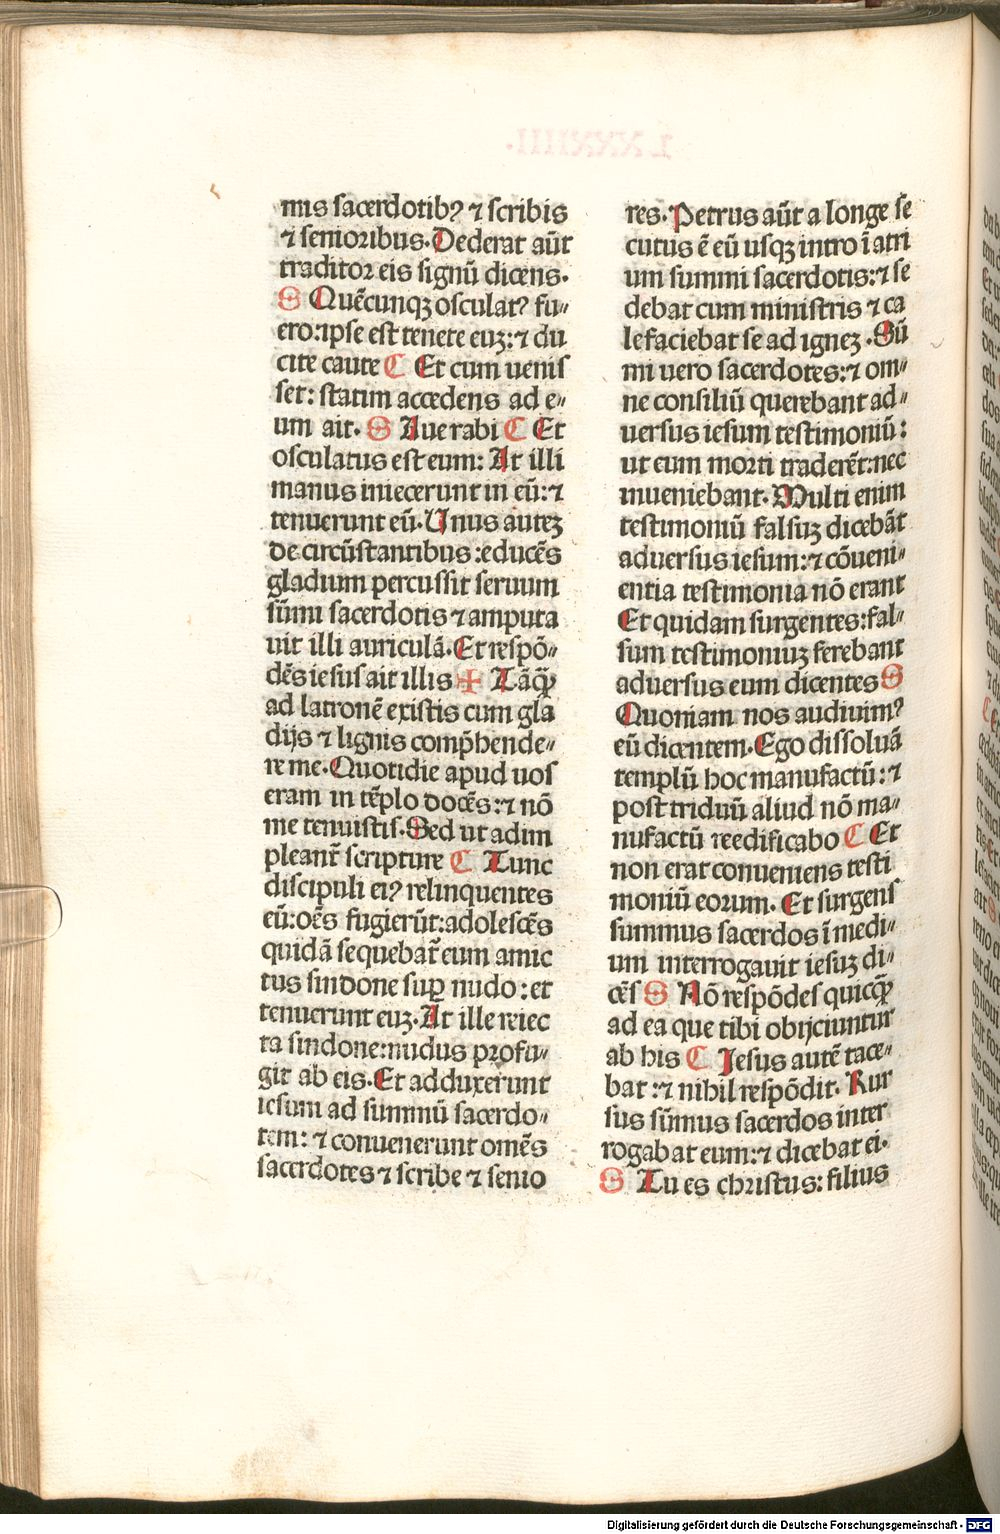 mis sacerdotibꝰ ⁊ scribis
⁊ senioribus. Dederat aūt
traditor eis signū dicens.
S Quēcunqꝫ osculatꝰ fu⸗
ero: ipse est tenete euꝫ: ⁊ du
cite caute C Et cum uenis
set: statim accedens ad e⸗
um ait. S Aue rabi C Et
osculatus est eum: At illi
manus iniecerunt in eū: ⁊
tenuerunt eū. Unus auteꝫ
de circūstantibus: educēs
gladium percussit seruum
sūmi sacerdotis ⁊ amputa
uit illi auriculā. Et respō⸗
dēs iesus ait illis ✠ Tāqꝫ̄
ad latronē existis cum gla
dijs ⁊ lignis comp̄hende⸗
re me. Quotidie apud uos
eram in tēplo docēs: ⁊ nō
me tenuistis. Sed ut adim
pleant̄ scripture C Tunc
discipuli eiꝰ relinquentes
eū: oēs fugierūt: adolescēs
quidā sequebat̄ eum amic
tus sindone suꝑ nudo: et
tenuerunt euꝫ. At ille reiec
ta sindone: nudus profu⸗
git ab eis. Et adduxerunt
iesum ad summū sacerdo⸗
tem: ⁊ conuenerunt omēs
sacerdotes ⁊ scribe ⁊ senio
res. Petrus aūt a longe se
cutus ē eū usqꝫ intro ī atri
um summi sacerdotis: ⁊ se
debat cum ministris ⁊ ca
lefaciebat se ad igneꝫ. Sū
mi uero sacerdotes: ⁊ om⸗
ne consiliū querebant ad⸗
uersus iesum testimoniū:
ut eum morti traderēt: nec
inueniebant. Multi enim
testimoniū falsuꝫ dicebāt
aduersus iesum: ⁊ cōueni⸗
entia testimonia nō erant
Et quidam surgentes: fal⸗
sum testimoniuꝫ ferebant
aduersus eum dicentes S
Quoniam nos audiuimꝰ
eū dicentem. Ego dissoluā
templū hoc manufactū: ⁊
post triduū aliud nō ma⸗
nufactū reedificabo C Et
non erat conueniens testi
moniū eorum. Et surgens
summus sacerdos ī medi⸗
um interrogauit iesuꝫ di⸗
cēs S Nō respōdes quicqꝫ̄
ad ea que tibi obijciuntur
ab his C Jesus autē tace⸗
bat: ⁊ nihil respōdit. Rur
sus sūmus sacerdos inter
rogabat eum: ⁊ dicebat ei.
S Tu es christus: filius
Digitalisierung gefördert durch die Deutsche Forschungsgemeinschaft - DFG